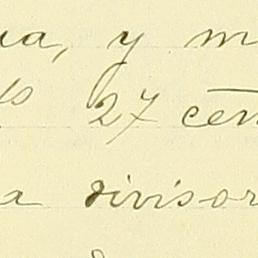 ua, y m
27 cen
a divisor